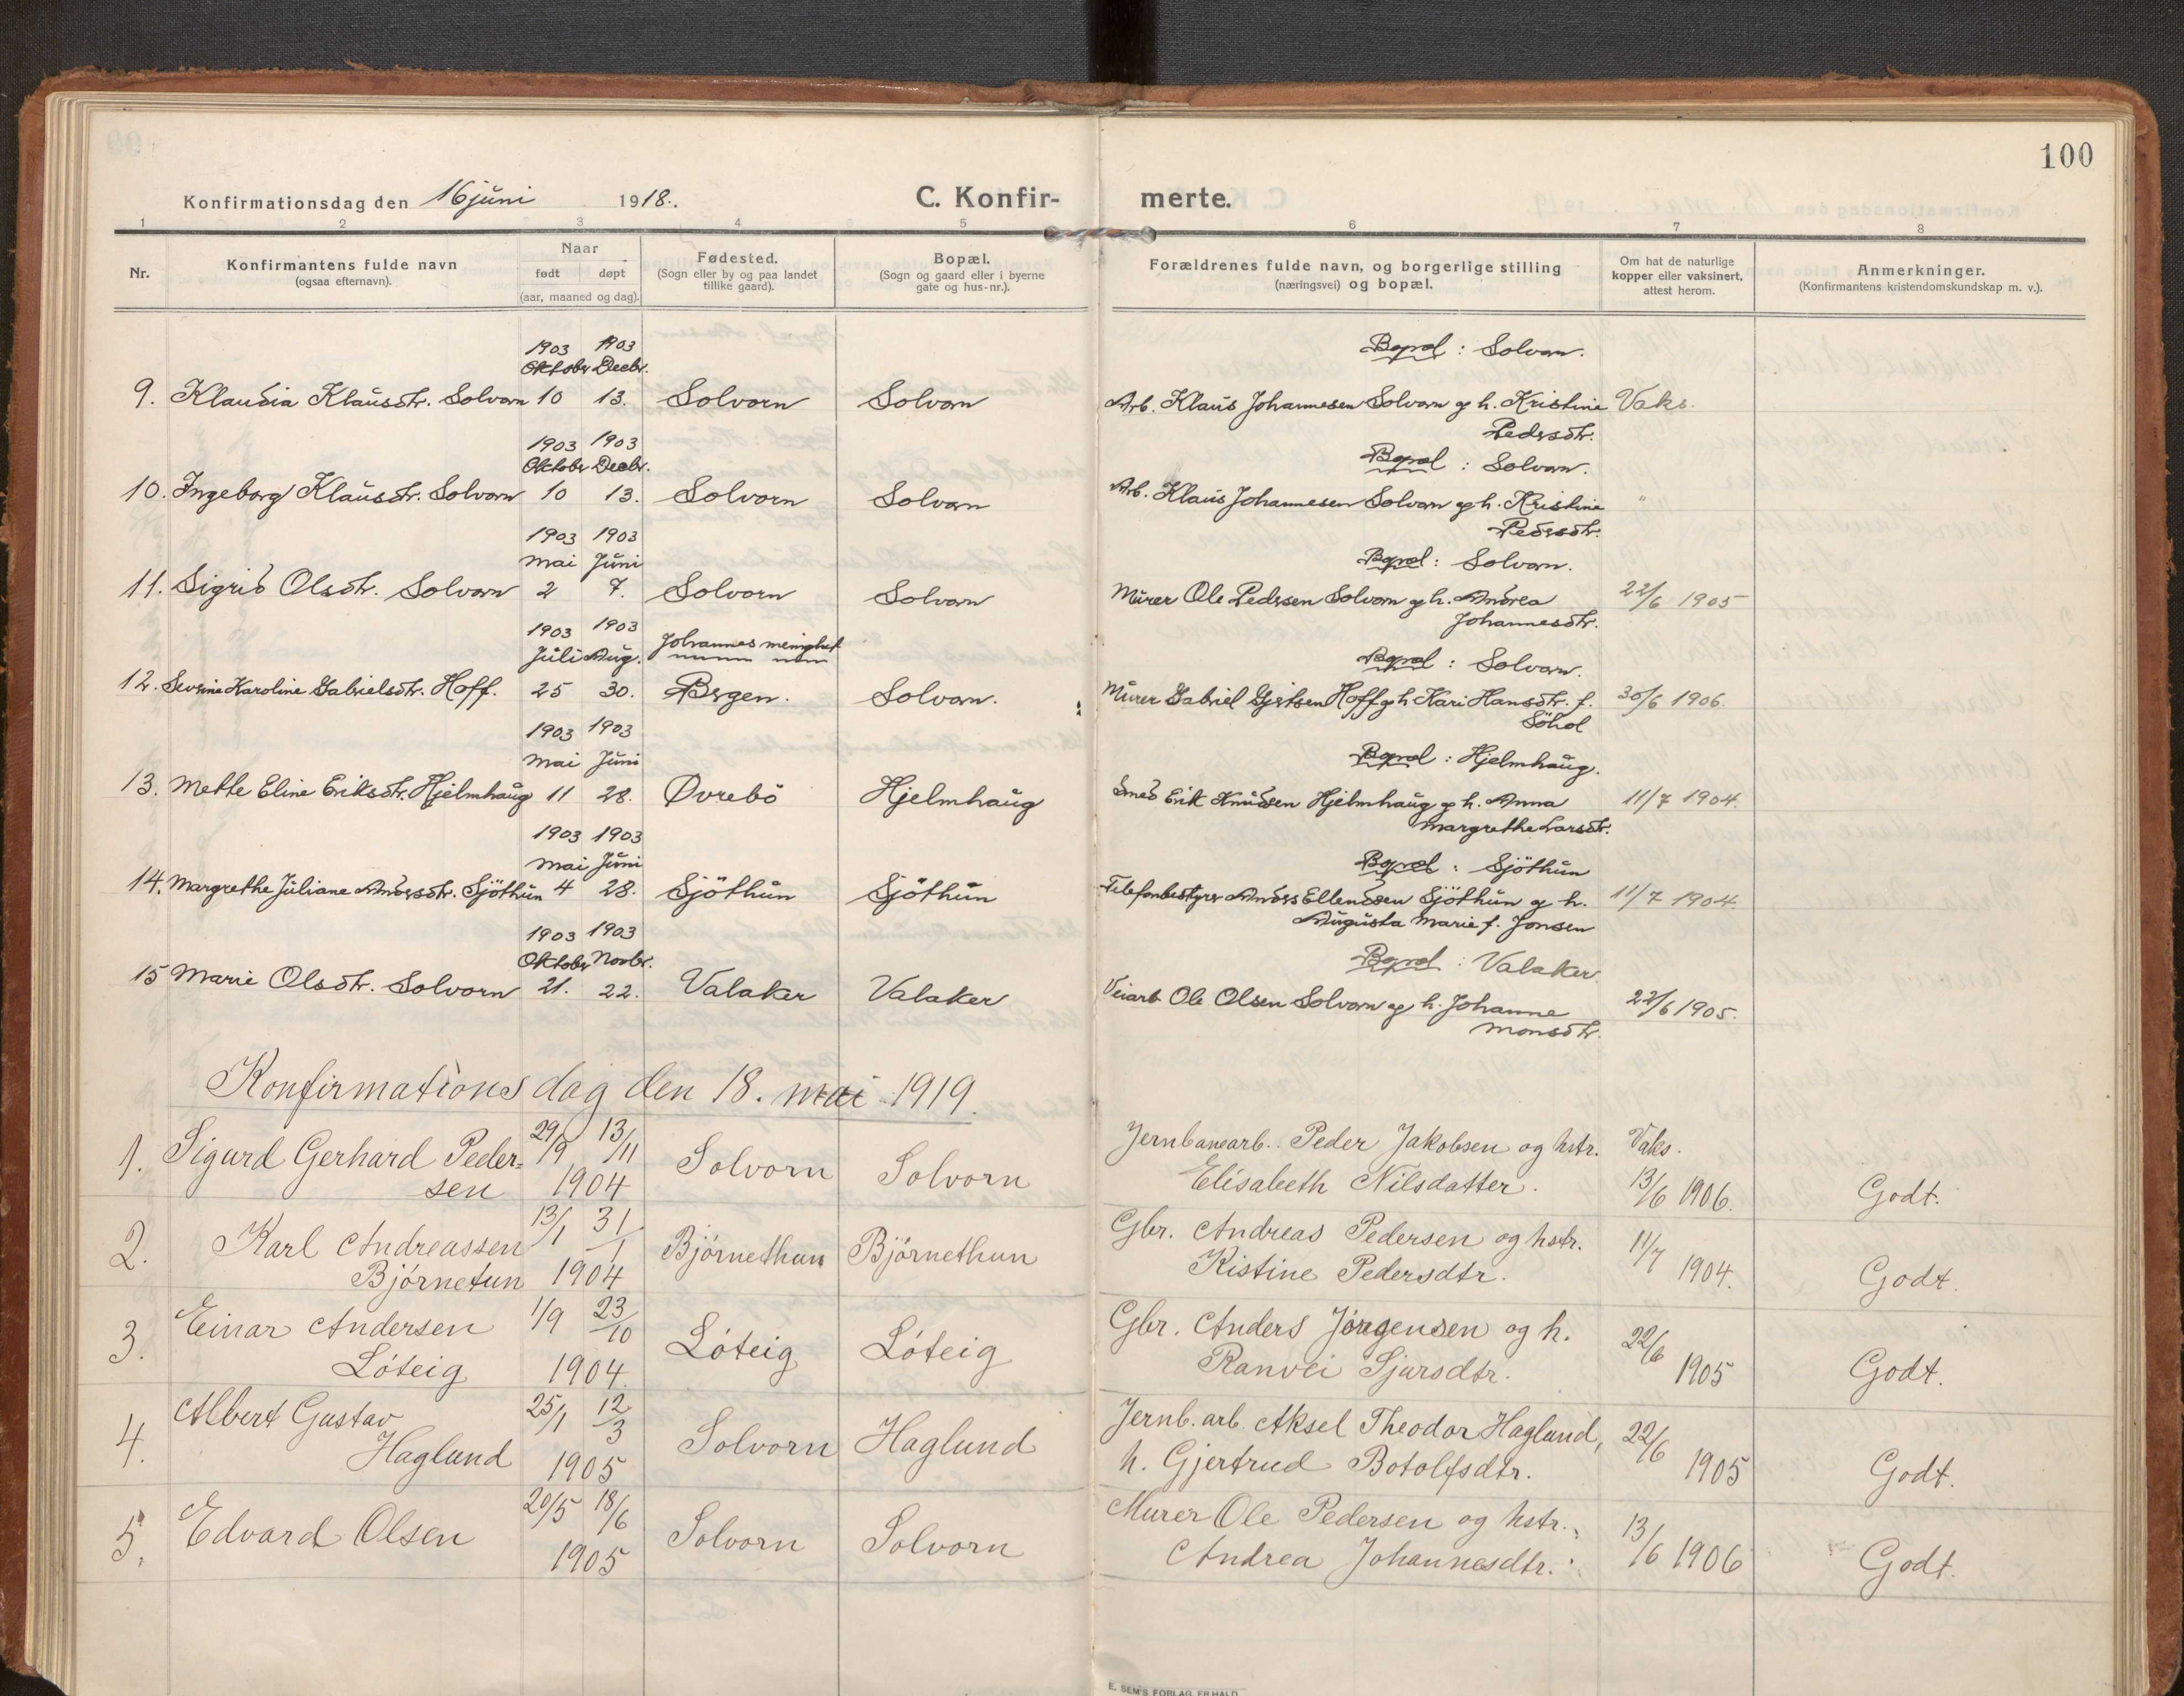 100
Konfirmationsdag den 16 juni 1918. C. Konfir- merte.
1 2 3 4 5 6 7 8
Nr.
Konfirmantens fulde navn
(ogsaa efternavn).
Naar
født døpt
(aar, maaned og dag).
Fødested.
(Sogn eller by og paa landet
tillike gaard).
Bopæl.
(Sogn og gaard eller i byerne
gate og hus-nr.).
Forældrenes fulde navn, og borgerlige stilling
(næringsvei) og bopæl.
Om hat de naturlige
kopper eller vaksinert,
attest herom.
Anmerkninger.
(Konfirmantens kristendomskundskap m. v.).
1903 1903 Bopæl : Solvorn.
Oktober Decbr.
9. Klaudia Klausdtr. Solvorn 10 13. Solvorn Solvorn Arb. Klaus Johannesen Solvorn og h. Kristine Vaks.
Pedersdtr.
1903 1903 Bopæl : Solvorn.
Oktober Decbr.
10. Ingeborg Klausdtr. Solvorn 10 13. Solvorn Solvorn Arb. Klaus Johannesen Solvorn og h. Kristine "
Pedersdtr.
1903 1903 Bopæl : Solvorn.
Mai Juni
11. Sigrid Olsdtr. Solvorn 2 7. Solvorn Solvorn Murer Ole Pedersen Solvorn og h. Andrea 22/6 1905
Johannesdtr.
1903 1903 Johannes menighet Bopæl : Solvorn.
Juli Aug.
12. Severine Karoline Gabrielsdtr. Hoff. 25 30. Bergen. Solvorn. Murer Gabriel Gjertsen Hoff og h Kari Hansdtr. f. 30/6 1906.
Söhol
1903 1903 Bopæl : Hjelmhaug.
Mai Juni
13. Mette Eline Eriksdtr. Hjelmhaug 11 28. Øvrebö Hjelmhaug Smed Erik Knudsen Hjelmhaug og h. Anna 11/7 1904.
Margrethe Larsdtr.
1903 1903 Bopæl : Sjöthun
Mai Juni
14. Margrethe Juliane Andersdtr. Sjöthun 4 28. Sjöthun Sjöthun Telefonbestyrer Anders Ellendsen Sjöthun og h. 11/7 1904.
Augusta Marie f. Jonsen
1903 1903 Bopæl : Valaker.
Oktober Novbr.
15 Marie Olsdtr. Solvorn 21. 22. Valaker Valaker Veiarb Ole Olsen Solvorn og h. Johanne 22/6 1905.
Monsdtr.
Konfirmationsdag den 18. mai 1919.
1. Sigurd Gerhard Peder- 29/9 13/11 Solvorn Solvorn Jernbanearb. Peder Jakobsen og hstr. Vaks.
sen 1904 Elisabeth Nilsdatter. 13/6 1906. Godt.
2. Karl Andreassen 13/1 31/1 Björnethun Björnethun Gbr. Andreas Pedersen og hstr. 11/7
Björnetun 1904 Kistine Pedersdtr. 1904. Godt.
3. Einar Andersen 1/9 23/10 Löteig Löteig Gbr. Anders Jörgensen og h. 22/6
Löteig 1904. Ranvei Sjursdtr. 1905 Godt.
4. Albert Gustav 25/1 12/3 Solvorn Haglund Jernb.arb. Aksel Theodor Haglund, 22/6
Haglund 1905 h. Gjertrud Botolfsdtr. 1905 Godt.
5. Edvard Olsen 20/5 18/6 Solvorn Solvorn Murer Ole Pedersen og hstr.
1905 Andrea Johannesdtr. 13/6 1906 Godt.
E. SEM'S FORLAG, FR.HALD